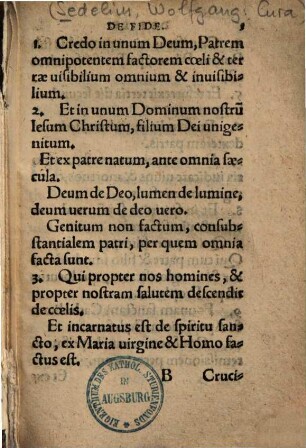 (Sedelius, Wolfgang: Cura
DE FIDE.
1. Credo in unum Deum, Patrem
omnipotentem factorem cœli & ter
ræ uisibilium omnium & inuisibi
lium.
2. Et in unum Dominum nostrũ
Iesum Christum, filium Dei unige
nitum.
Et ex patre natum, ante omnia sæ
cula.
Deum de Deo, lumen de lumine,
deum uerum de deo uero.
Genitum non factum, consub
stantialem patri, per quem omnia
facta sunt.
3. Qui propter nos homines, &
propter nostram salutem descendit
de cœlis.
Et incarnatus est de spiritu san
cto, ex Maria uirgine & Homo fa
ctus est.
B Cruci-
EIGENTHUM DES KATHOL. STUDIENFONDS
IN
AUGSBURG